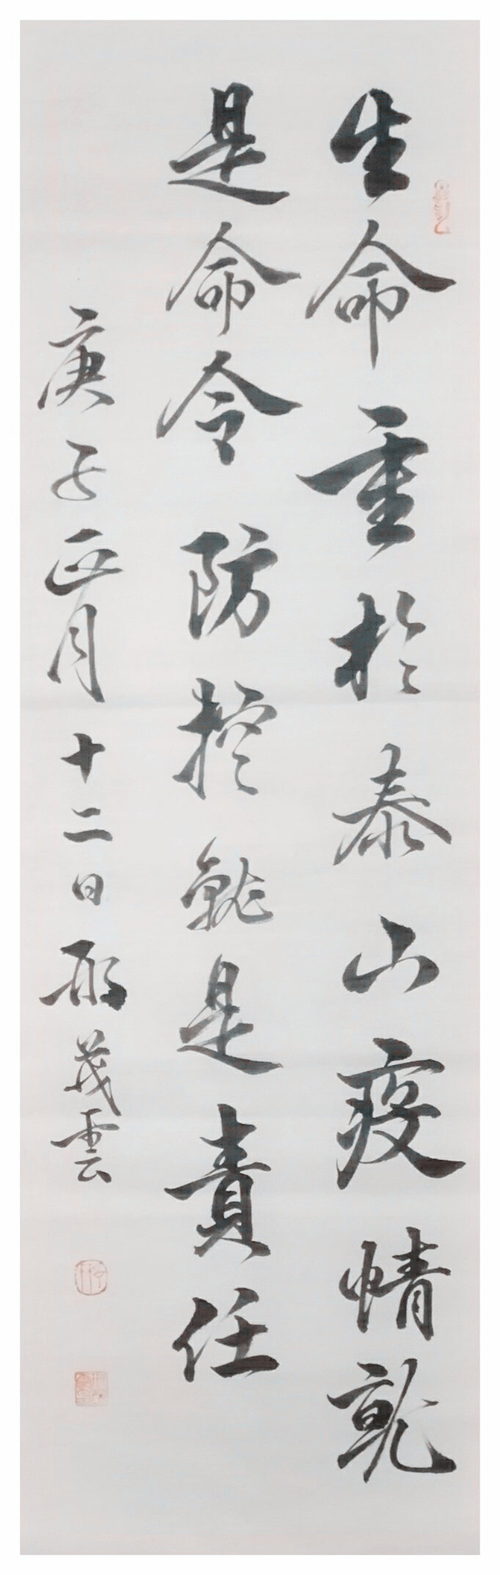 生命重於泰山疫情就
是命令防控就是責任
庚子正月十二日邢茂雲